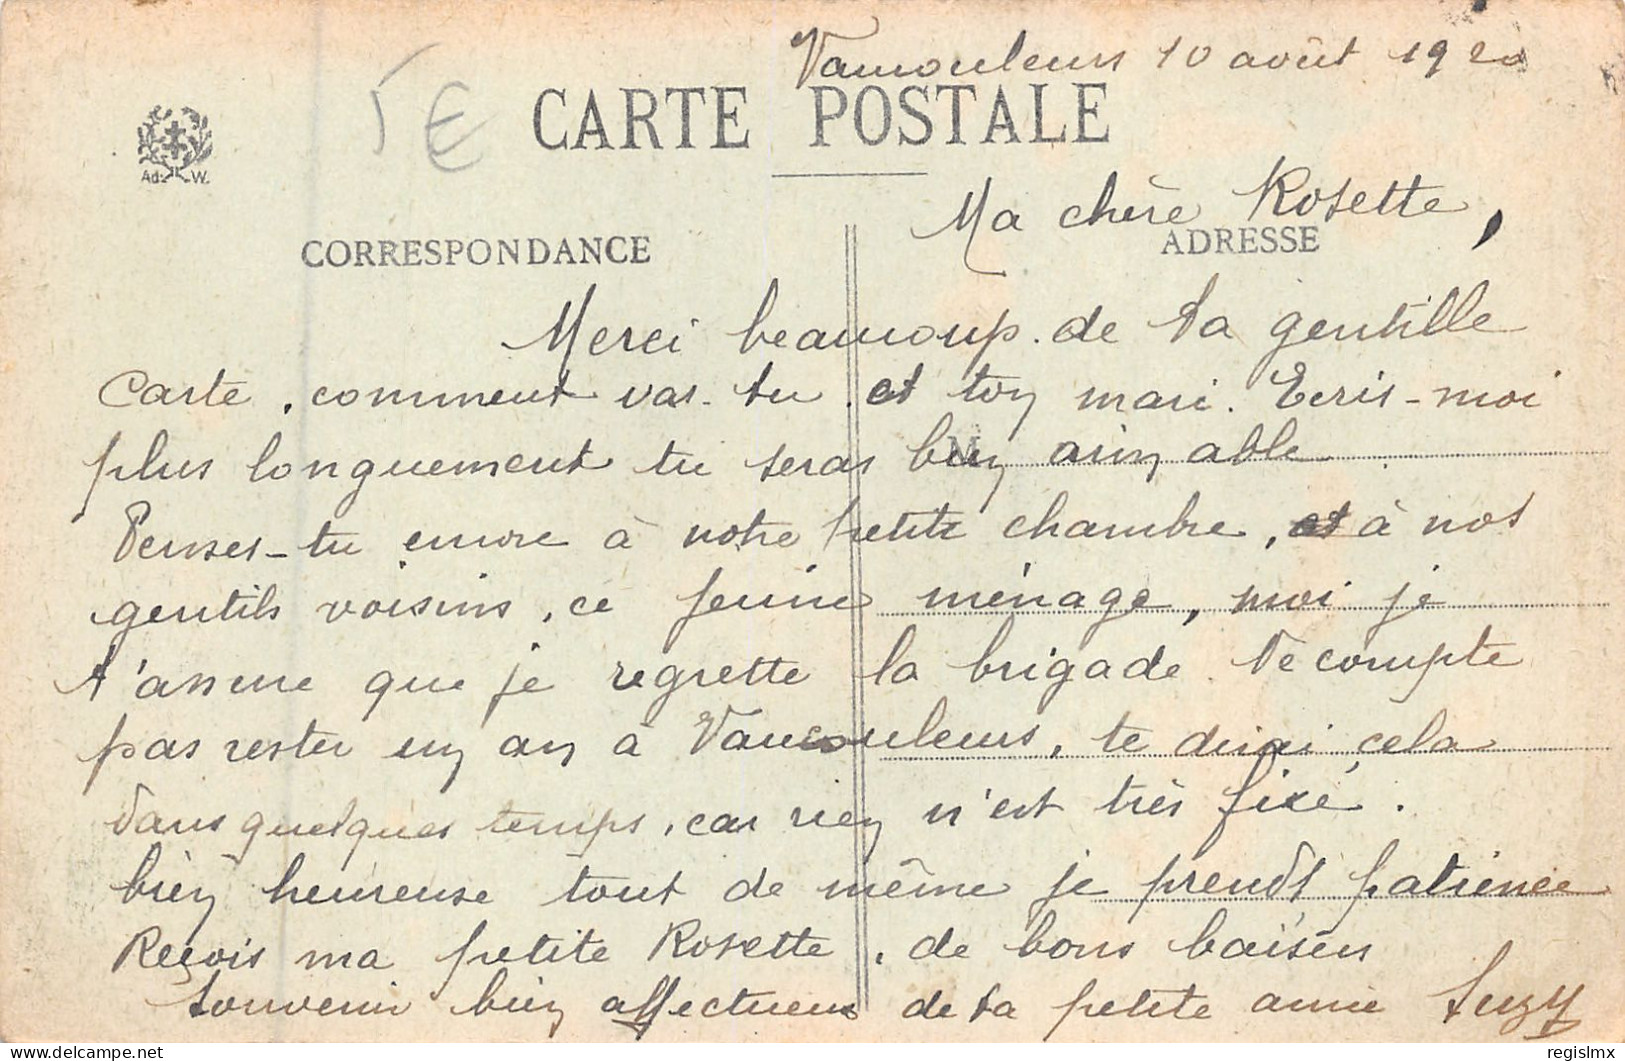 Vaucouleurs 10 août 1920
CARTE POSTALE
Ad. W.
Ma chère Rosette,
CORRESPONDANCE
ADRESSE
Merci beaucoup de ta gentille
Carte, comment vas-tu et ton mari. Ecris-moi
plus longuement tu seras bien aimable
M
Penses-tu encore à notre petite chambre, et à nos
gentils voisins, ce jeune ménage, moi je
t'assure que je regrette la brigade. Ne compte
pas rester un an à Vaucouleurs, te dirai cela
dans quelques temps, car rien n'est très fixé.
bien heureuse tout de même je prends patience
Reçois ma petite Rosette, de bons baisers
Souvenir bien affectueux de ta petite amie Suzy
https://www.delcampe.net
regislmx